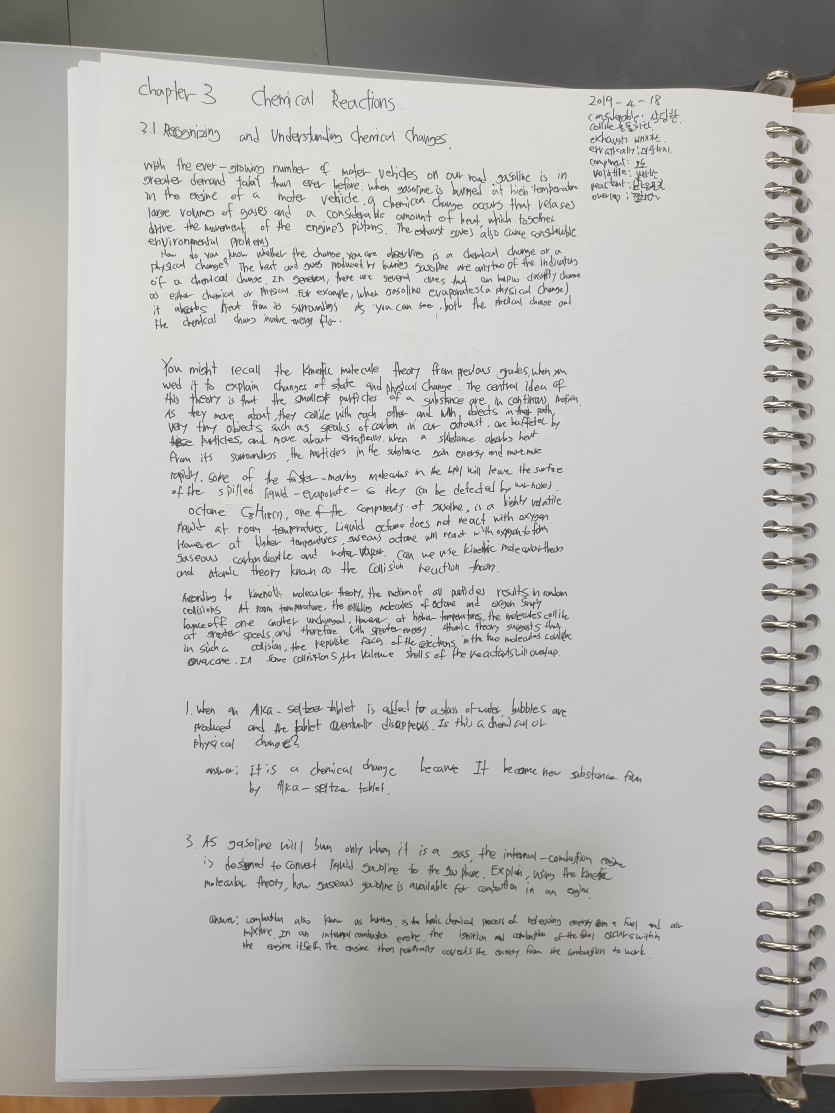 chapter 3 Chemical Reactions.
2019-4-18
considerable: 상당한
collide:
exhaust:
erratically:
component:
volatile:
reactant:
overlap:
3.1 Recognizing and Understanding Chemical Changes.
with the ever-growing number of moter vehicles on our road, gasoline is in
greater demand than ever before. when gasoline is burned at high temperature
in the engine of a moter vehicle, a chemican change occurs that
large volumes of gases and a considerable amount of heat, which
drive the movement of the engine's The exhaust also cause
environmental
How do you know whether the change you are observing is a chemical change or a
physical change? The heat and produced by burning gasoline are only two of the indicators
of a chemical change. In there are several clues that can help us classify change
as either chemical or physical. For example, when gasoline evaporates (a physical change)
it absorbs heat from its surroundings As you can see, both the physical change and
the chemical involve energy
You might recall the kinetic molecule theory from previous grades, when you
used it to explain changes of state and physical change. The central idea of
this theory is that the smallest particles of a substance are in continous motion.
As they move about, they collide with each other and with objects in their path,
very tiny objects such as of carbon in car exhaust, are buffeted by
these particles, and move about erratically. when a substance absorbs heat
from its surroundings, the particles in the substance gain energy and move more
rapidly. some of the faster-moving molecules in the will leave the surface
of the spilled liquid-evaporate-so they can be detected by
octane one of the components of gasoline, is a highly volatile
liquid at room temperatures. Liquid octane does not react with oxygen.
However at higher temperatures, gaseous octane will react with oxygen to form
gaseous carbon dioxide and water vapor. can we use kinetic molecular theory
and atomic theory known as the collision reaction
According to kinetic molecular theory, the motion of all particles results in random
collisions At room temperature, the colliding molecules of octane and oxygen simply
bounce off one another unchanged. However at higher temperatures, the molecules collide
at greater speeds, and therefore with greater energy. Atomic theory suggests that
in such a collision, the repulsive of the electrons in the two molecules could be
overcome. In some collistions, the valence shells of the reactants will overlap.
1. when an Alka-seltzer tablet is added to a glass of water, bubbles are
produced and the tablet eventually disappears. Is this a chemical or
physical change?
answer: It is a chemical change because It become new substance
by Alka-seltzer tablet.
3. As gasoline will burn only when it is a gas, the internal-combustion engine
is designed to convert liquid gasoline to the gas phase. Explain, using the kinetic
molecular theory, how gaseous gasoline is available for combustion in an engine.
answer: combustion also know as is the basic chemical process of releasing energy from a fuel and air
mixture. In an internal combustion engine, the ignition and combustion of the fuel occurs within
the engine itself. The engine then partially converts the energy from the combustion to work.